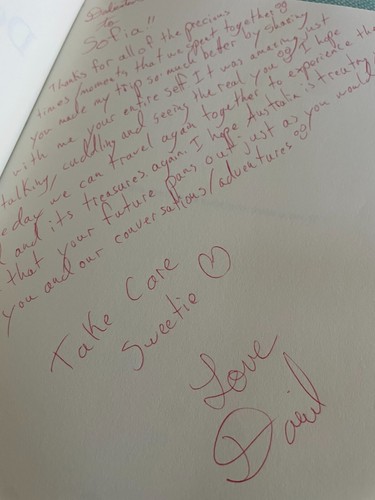 Dedication
to
Sofia!!
Thanks for all of the precious
times/moments that we spent together
you made my trip so much better by sharing
with me your entire self. I was amazing just
talking, cuddling and seeing the real you I hope
day we can travel again together to experience the
and its treasures again. I hope Australia is treating
that your future pans out just as you would
you and our conversations/adventures
Take Care
Sweetie ♡
Love